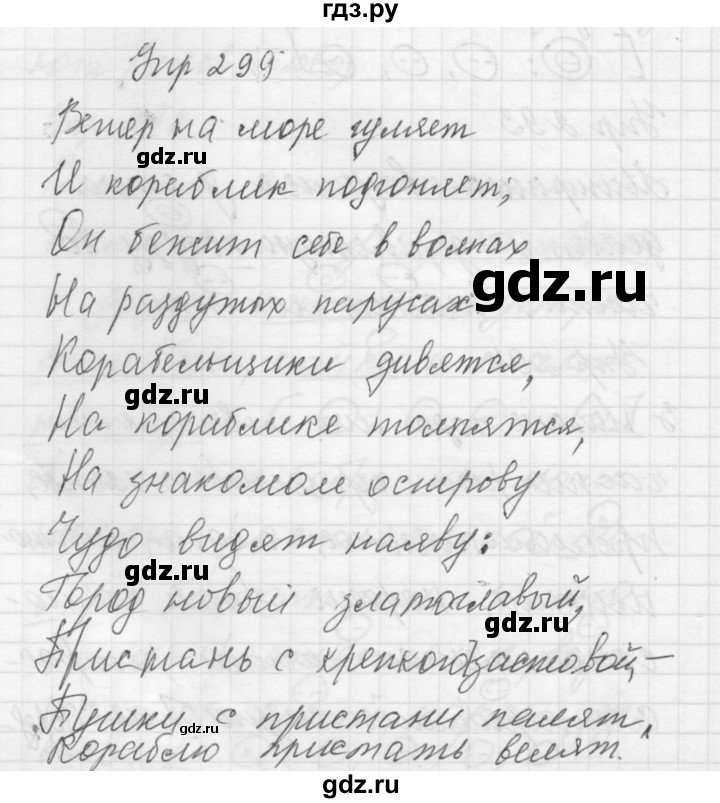 гдз.ру
Упр 299
Ветер на море гуляет
gdz.ru
И кораблик подгоняет;
Он бежит себе в волнах
gdz.ru
gdz.ru
На раздутых парусах
Корабельщики дивятся,
gdz.ru
gdz.ru
На кораблике толпятся,
На знакомом острову
Чудо видят наяву:
gdz.ru
Город новый златоглавый,
gdz.ru
Пристань с крепкого заставой –
Пушки с пристани палят,
gdz.ru
Кораблю пристать велят.
gdz.ru